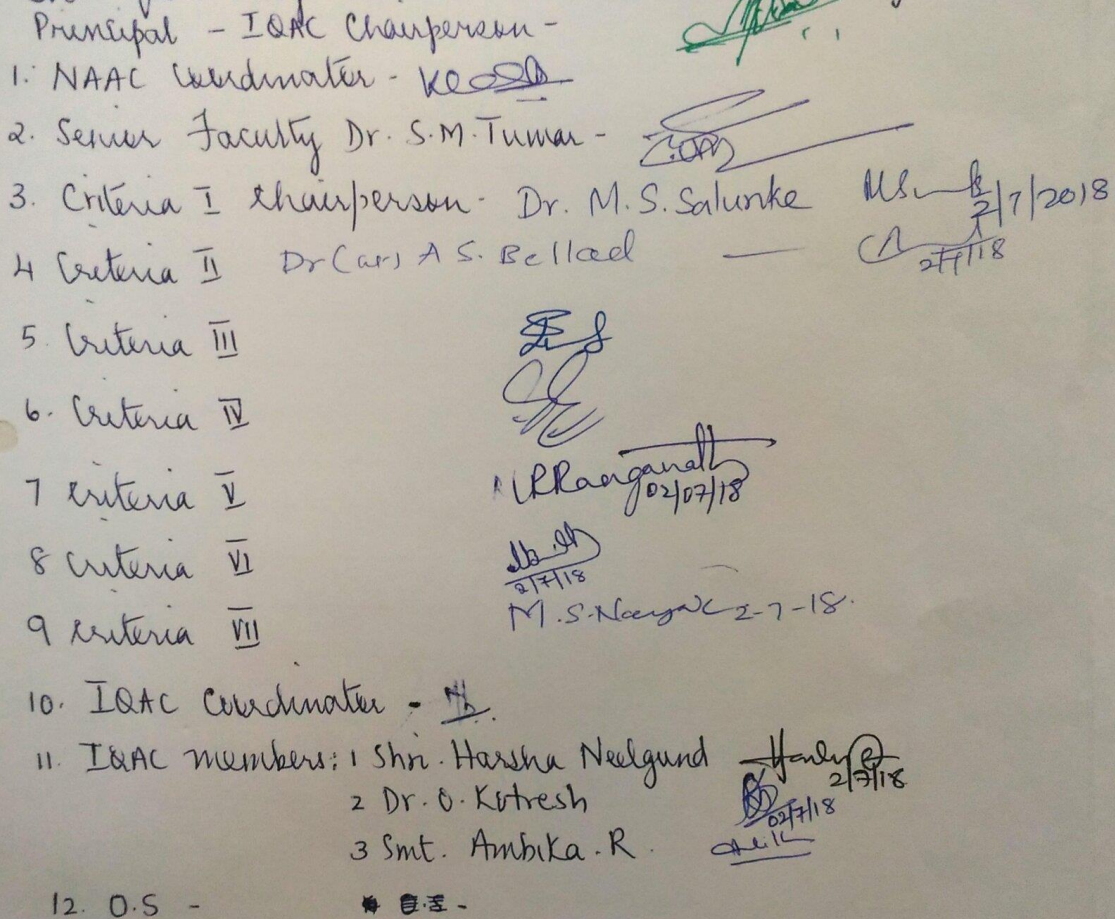 Principal - IQAC Chairperson -
1. NAAC Coordinator -
2. Senior Faculty Dr. S.M. Tumar -
3. Criteria I Chairperson - Dr. M.S. Salunke 2/7/2018
4 Criteria II Dr (Capt) A S. Bellad — 2/7/18
5 Criteria III
6. Criteria IV
7 Criteria V NRRanganath 02/07/18
8 Criteria VI 2/7/18
9 Criteria VII M.S. Nayak 2-7-18.
10. IQAC Coordinator -
11. IQAC members: 1 Shri. Harsha Neelgund 2/7/18
2 Dr. O. Kotresh 02/7/18
3 Smt. Ambika. R.
12. O.S -